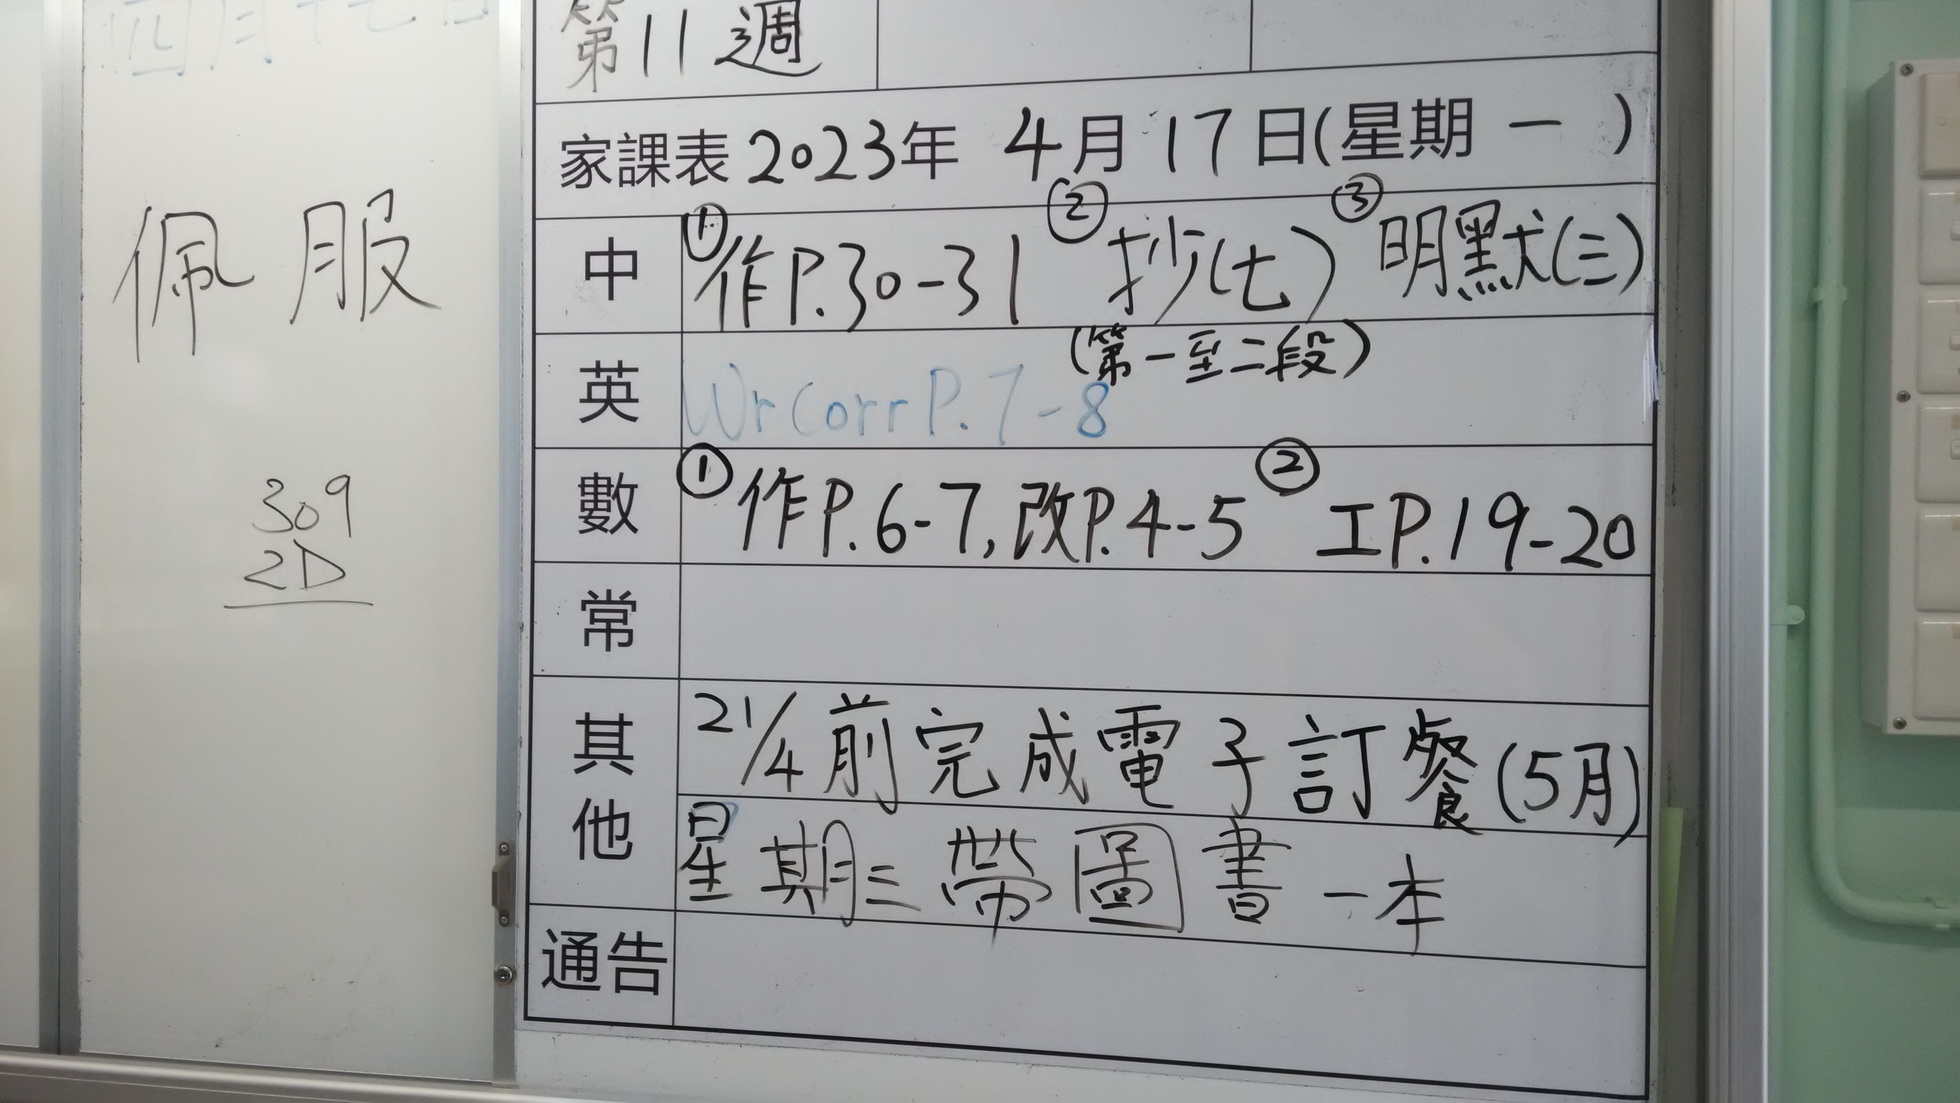 四月十七日
佩服
309
2D
第11週
家課表 2023年 4月17日(星期一)
中 ①作P.30-31 ②抄(七) ③明默(三)
(第一至二段)
英 Wr Corr P.7-8
數 ①作P.6-7,改P.4-5 ②工P.19-20
常
其他 21/4前完成電子訂餐(5月)
星期三帶圖書一本
通告